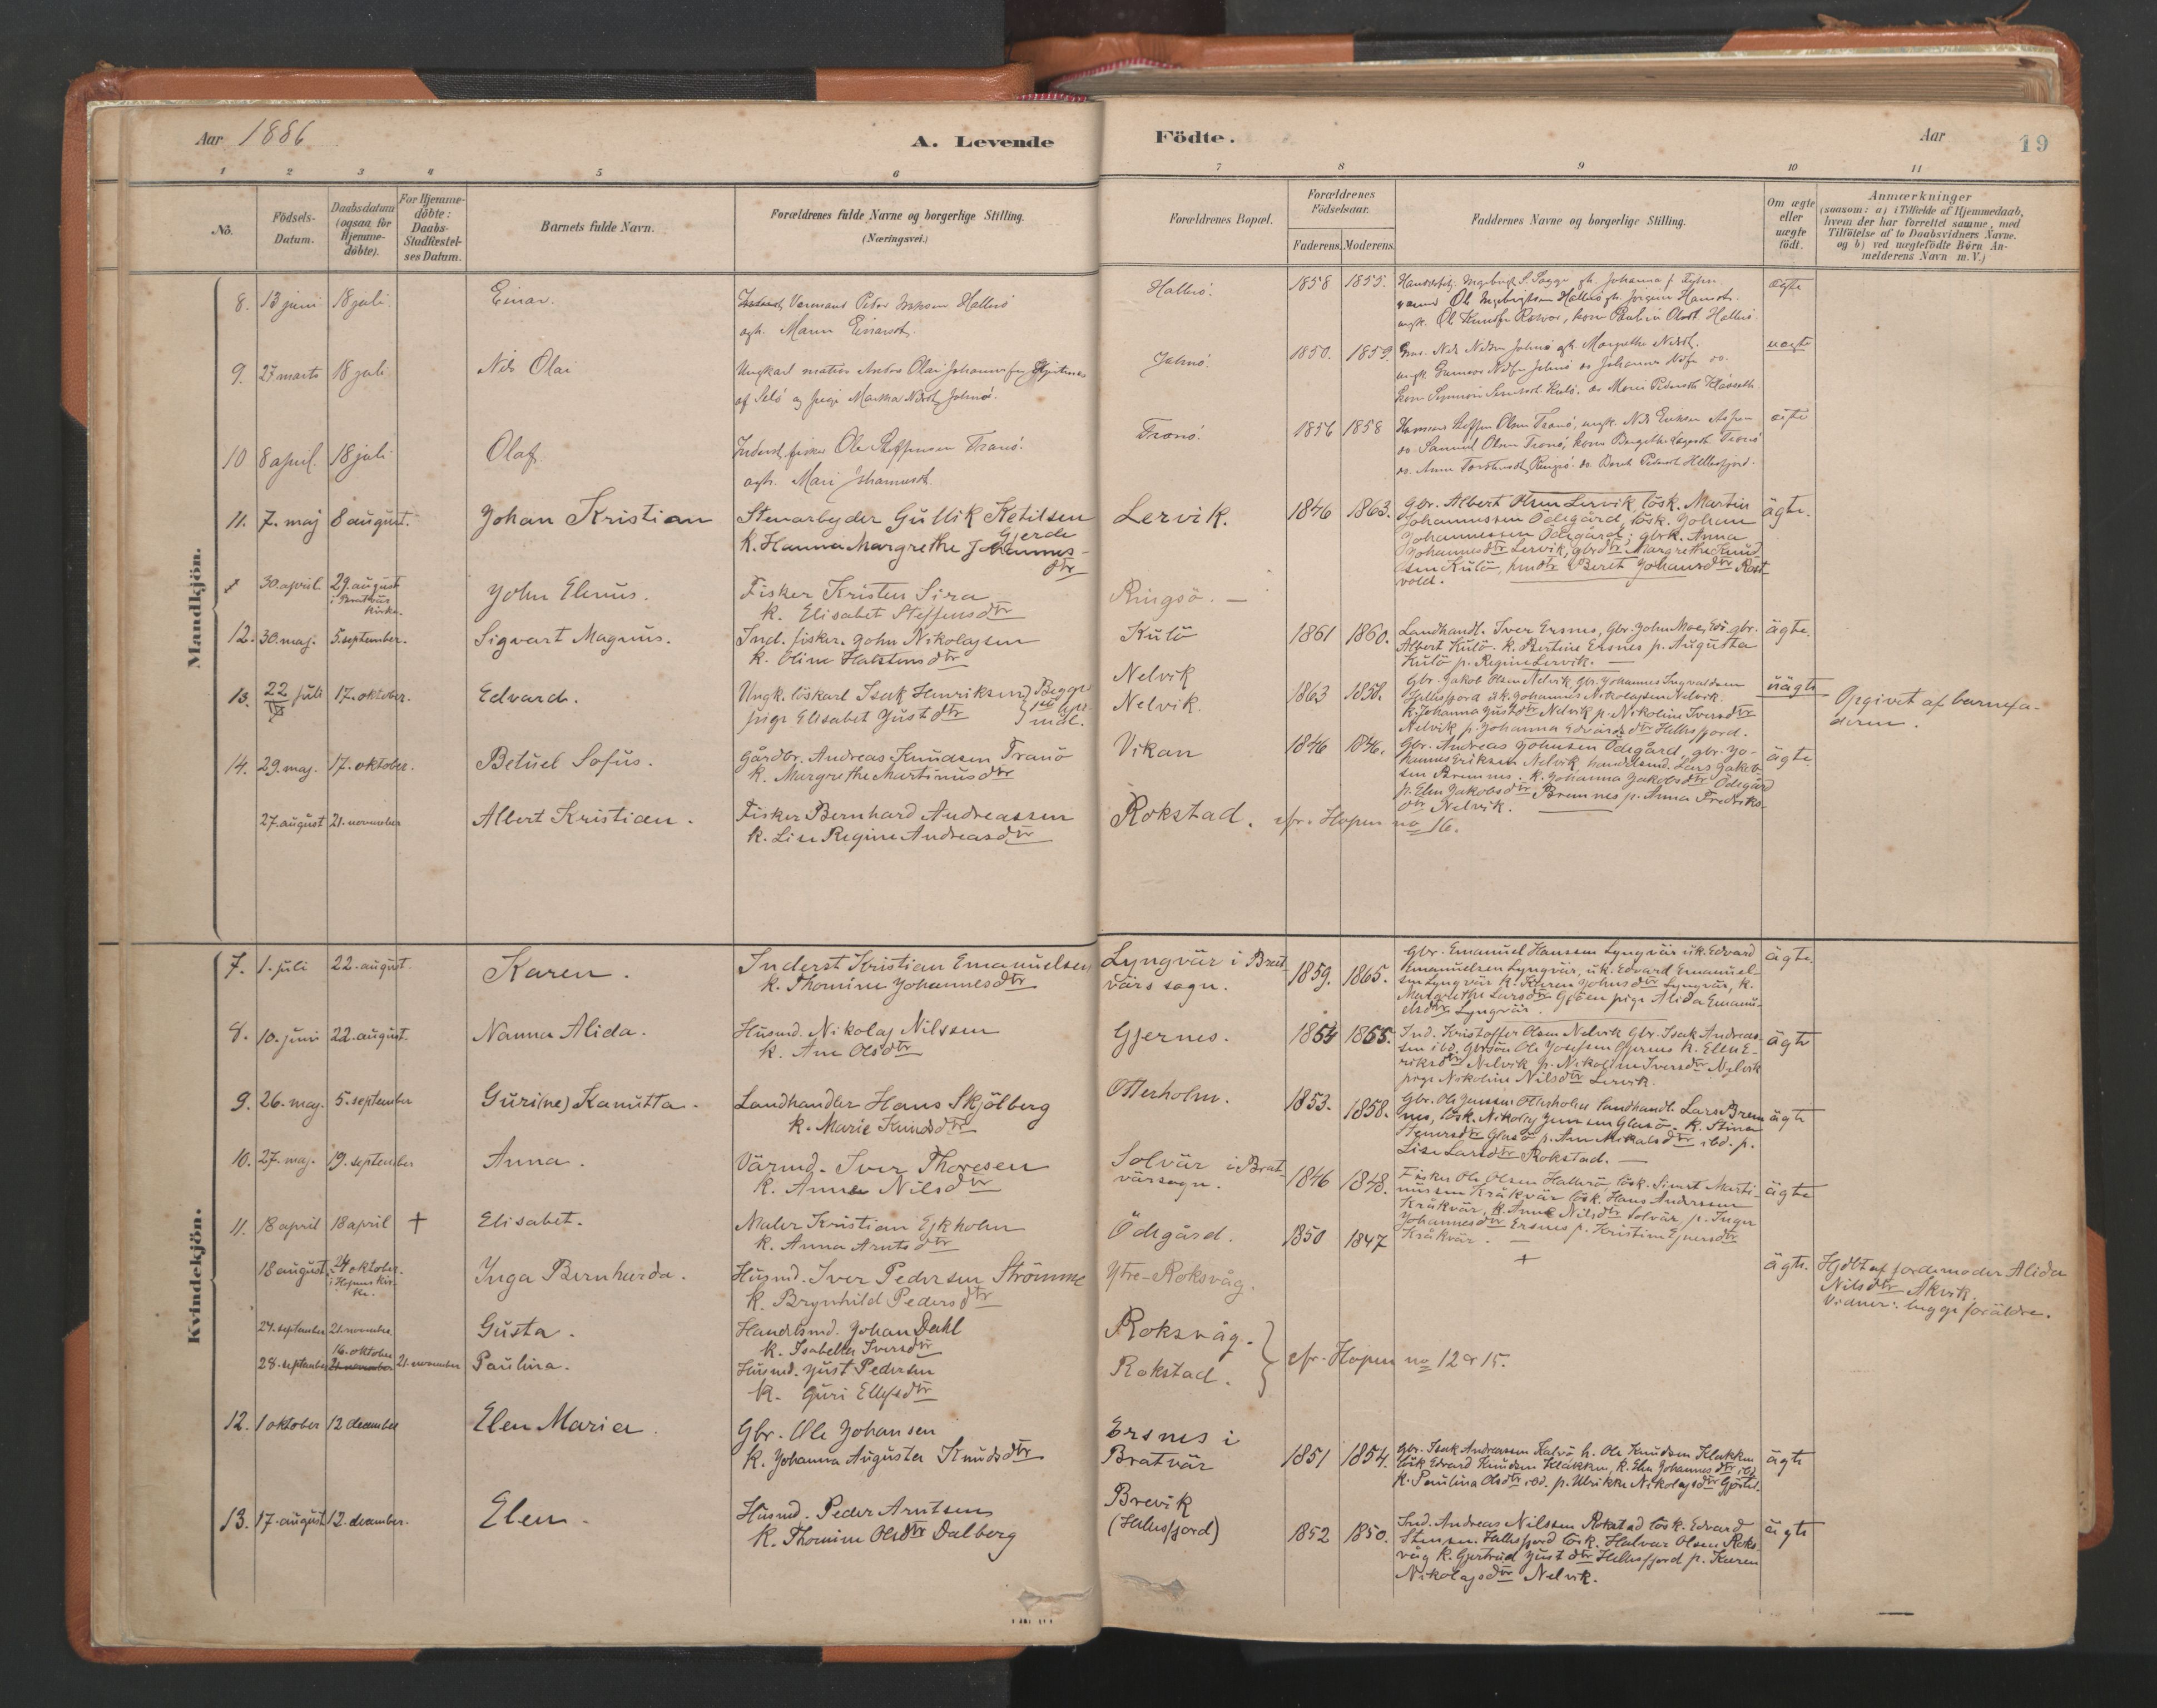 Aar 1886
A. Levende
Födte.
Aar
19
1 2 3 4 5 6 7 8 9 10 11
No.
Födsels-
Datum.
Daabsdatum
(ogsaa for
Hjemme-
döbte).
For Hjemme-
döbte:
Daabs-
Stadfæstel-
ses Datum.
Barnets fulde Navn.
Forældrenes fulde Navne og borgerlige Stilling.
(Næringsvei.)
Forældrenes Bopæl.
Forældrenes
Födselsaar.
Faderens. Moderens.
Faddernes Navne og borgerlige Stilling.
Om ægte
eller
uægte
födt.
Anmærkninger
(saasom: a) i Tilfælde af Hjemmedaab,
hvem der har forrettet samme, med
Tilföielse af to Daabsvidners Navne.
og b) ved uægtefödte Börn An-
melderens Navn m. V.)
Mandkjön.
8. 13 juni 18 juli Einar.
Peder
agh. Maren Einarsdt.
Hallarö. 1858 1855. ægte
9. 27 marts 18 juli Nils Olai
Ungkarl matros Anders Olai Johannesen
af og pige Martha Nilsdt.
1850. 1859. uægte
10 8 april. 18 juli Olaf.
Inderst, fisker Ole Steffensen Tranö.
agh. Mari Johannesdt.
Tranö. 1856 1858 ægte
11. 7. maj 8 august. Johan Kristian
Stenarbejder Gullik Ketilsen
Gjerde
k. Hanna Margrethe Johannes-
dtr
Lervik. 1846 1863.
Gbr. Albert Olsen Lervik, lösk. Martin
Johannessen Ödegård, lösk. Johan
Johannessen Ödegård; gbrk. Anna
Johannesdtr Lervik, gbrdtr Margrethe Knud-
sen Kulö, Beret Johansdtr Rost-
vold.
ägte.
30. april. 29. august
i Bratvär
kirke.
John Elenus.
Fisker Kristen Sira
k. Elisabet Steffensdtr
Ringsö. —
12. 30. maj. 5. september. Sigvart Magnus.
Ind. fisker. John Nikolajsen
k. Oline Halstensdtr
Kulö 1861 1860.
Landhandl. Iver Ersnes, Gbr. John Moe, gbr.
Albert Kulö. k. Bertine Ersnes p. Augusta
Kulö p. Regine Lervik. —
ägte.
13. 22 juli 17. oktober. Edvard.
Ungk. löskarl Isak Henriksen } Begges
pige Elisabet Justdtr
Nelvik
Nelvik. 1863 1858.
Gbr. Jakob Olsen Nelvik, gbr. Johannes Ingvaldsen
Hellesfjord ük. Johannes Nikolajsen Nelvik.
k. Johanna Justdtr Nelvik p. Nikoline Iversdtr
Nelvik p. Johanna Edvardsdtr Hellesfjord.
uägte
Opgivet af barnefa-
deren.
14. 29. maj. 17. oktober. Betuel Sofus.
Gårdbr. Andreas Knudsen Tranö
k. Margrethe Martinusdtr
Vikan 1846 1846.
Gbr. Andreas Johnsen Ödegård, gbr. Jo-
hannes Eriksen Nelvik, handelsmd. Lars Jakob-
sen Bremnes. k. Johanna Jakobsdtr Ödegård
p. Elen Jakobsdtr Bremnes p. Anna Fredriks-
dtr Nelvik.
ägte.
27. august 21. november Albert Kristian.
Fisker Bernhard Andreassen
k. Lise Regine Andreasdtr
Rokstad. cfr. Hopen no 16.
Kvindekjön.
7. 1. juli 22. august. Karen.
Inderst Kristian Emanuelsen
k. Thomine Johannesdtr
Lyngvär i Brat-
värs sogn. 1859. 1865.
Gbr. Emanuel Hanssen Lyngvär ük. Edvard
Emanuelsen Lyngvär, ük. Edvard Emanuel-
sen Lyngvär k. Karen Johnsdtr Lyngvär, k.
Margrethe Larsdtr Gjöen pige Alida Emanu-
elsdtr Lyngvär.
ägte.
8. 10. juni 22. august. Nanna Alida.
Husmd. Nikolaj Nilssen
k. Ane Olsdtr
Gjernes. 1854 1855.
Ind. Kristoffer Olsen Nelvik Gbr. Isak Andreas-
sen ibd. Gbrsön Ole Josefsen Gjernes k. Elen E-
riksdtr Nelvik p. Nikoline Iversdtr Nelvik
pige Nikoline Nilsdtr Lervik.
ägte
9. 26. maj. 5. september Guri(ne) Kanutta.
Landhandler Hans Skjölberg
k. Marie Knudsdtr
Otterholm. 1853. 1858.
Gbr. Ole Jenssen Otterholm landhandl. Lars Brem-
nes, lösk. Nikolaj Jenssen Glasö. k. Stina
Steversdtr Glasö p. Ane Mikalsdtr ibd. p.
Lise Larsdtr Rokstad. —
ägte
10. 27. maj. 19. september Anna.
Värmd. Iver Thoresen
k. Anne Nilsdtr
Solvär i Brat-
värsogn. 1846 1848.
Fisker Ole Olsen Hallarö lösk. Sivert Marti-
nussen Kråkvär lösk. Hans Anderssen
Kråkvär, k. Anne Nilsdtr Solvär p. Inger
Johannesdtr Ersnes p. Kristine Ejnersdtr
Kråkvär. —
ägte
11. 18 april 18 april + Elisabet.
Maler Kristian Ejkholm
k. Anna Arntsdtr
Ödegård. 1850 1847
+
ägte.
Hjdbt af jordemoder Alida
Nilsdtr Akvik.
Vidner: begge forældre.
18 august. 24 oktober.
i Hopens kir-
ke.
Inga Bernharda.
Husmd. Iver Pedersen Strömme
k. Brynhild Pedersdtr
Ytre-Roksvåg.
24. september 21. november. Gusta.
Handelsmd. Johan Dahl
k. Isabella Iversdtr
Roksvåg.
28. september 16. oktober 21. november 21. november Paulina.
Husmd. Just Pedersen
k. Guri Ellefsdtr
Rokstad. } cfr. Hopen no 12 & 15.
12. 1 oktober 12 december Elen Maria.
Gbr. Ole Johansen
k. Johanna Augusta Knudsdtr
Ersnes i
Bratvär 1851 1854.
Gbr. Isak Andreassen Kalvö h. Ole Knudsen Klakken
lösk Edvard Knudsen Klakken, k. Elen Johannesdtr ibd
k. Paulina Olsdtr ibd. p. Ulrikke Nikolajsdtr
ägte
13. 17. august 12. december. Elen.
Husmd. Peder Arntsen
k. Thomine Olsdtr Dalberg
Brevik
(Hellesfjord) 1852 1850.
Ind. Andreas Nilssen Rokstad lösk. Edvard
Stensen. Hellesfjord lösk. Halvar Olsen Roks-
våg k. Gjertrud Justdtr Hellesfjord p. Karen
Nikolajsdtr Nelvik.
ägte